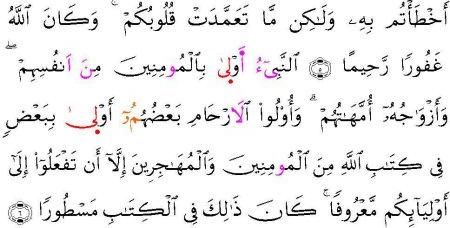 أَخْطَأْتُم بِهِۦ وَلَٰكِن مَّا تَعَمَّدَتْ قُلُوبُكُمْ ۚ وَكَانَ اللَّهُ
غَفُورًا رَّحِيمًا ٥ النَّبِيٓءُ أَوْلَىٰ بِالْمُومِنِينَ مِنَ اَنفُسِهِمْ ۖ
وَأَزْوَٰجُهُۥ أُمَّهَٰتُهُمْ ۗ وَأُوْلُوا الَارْحَامِ بَعْضُهُمُۥٓ أَوْلَىٰ بِبَعْضٍ
فِى كِتَٰبِ اللَّهِ مِنَ الْمُومِنِينَ وَالْمُهَٰجِرِينَ إِلَّآ أَن تَفْعَلُوٓا إِلَىٰٓ
أَوْلِيَآئِكُم مَّعْرُوفًا ۚ كَانَ ذَٰلِكَ فِى الْكِتَٰبِ مَسْطُورًا ٦